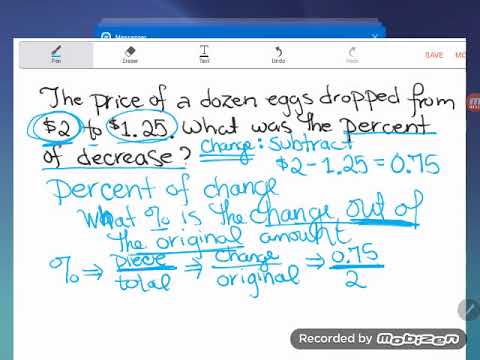 Messenger
Pen
Eraser
Text
Undo
Redo
SAVE
MO
The price of a dozen eggs dropped from
$2 to $1.25. What was the percent
of decrease? change: subtract
$2 - 1.25 = 0.75
Percent of change
What % is the change out of
the original amount
% ⇒ piece/total ⇒ change/original ⇒ 0.75/2
Recorded by MOBIZEN